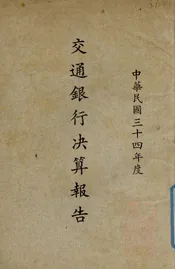 中華民國三十四年度
交通銀行決算報告